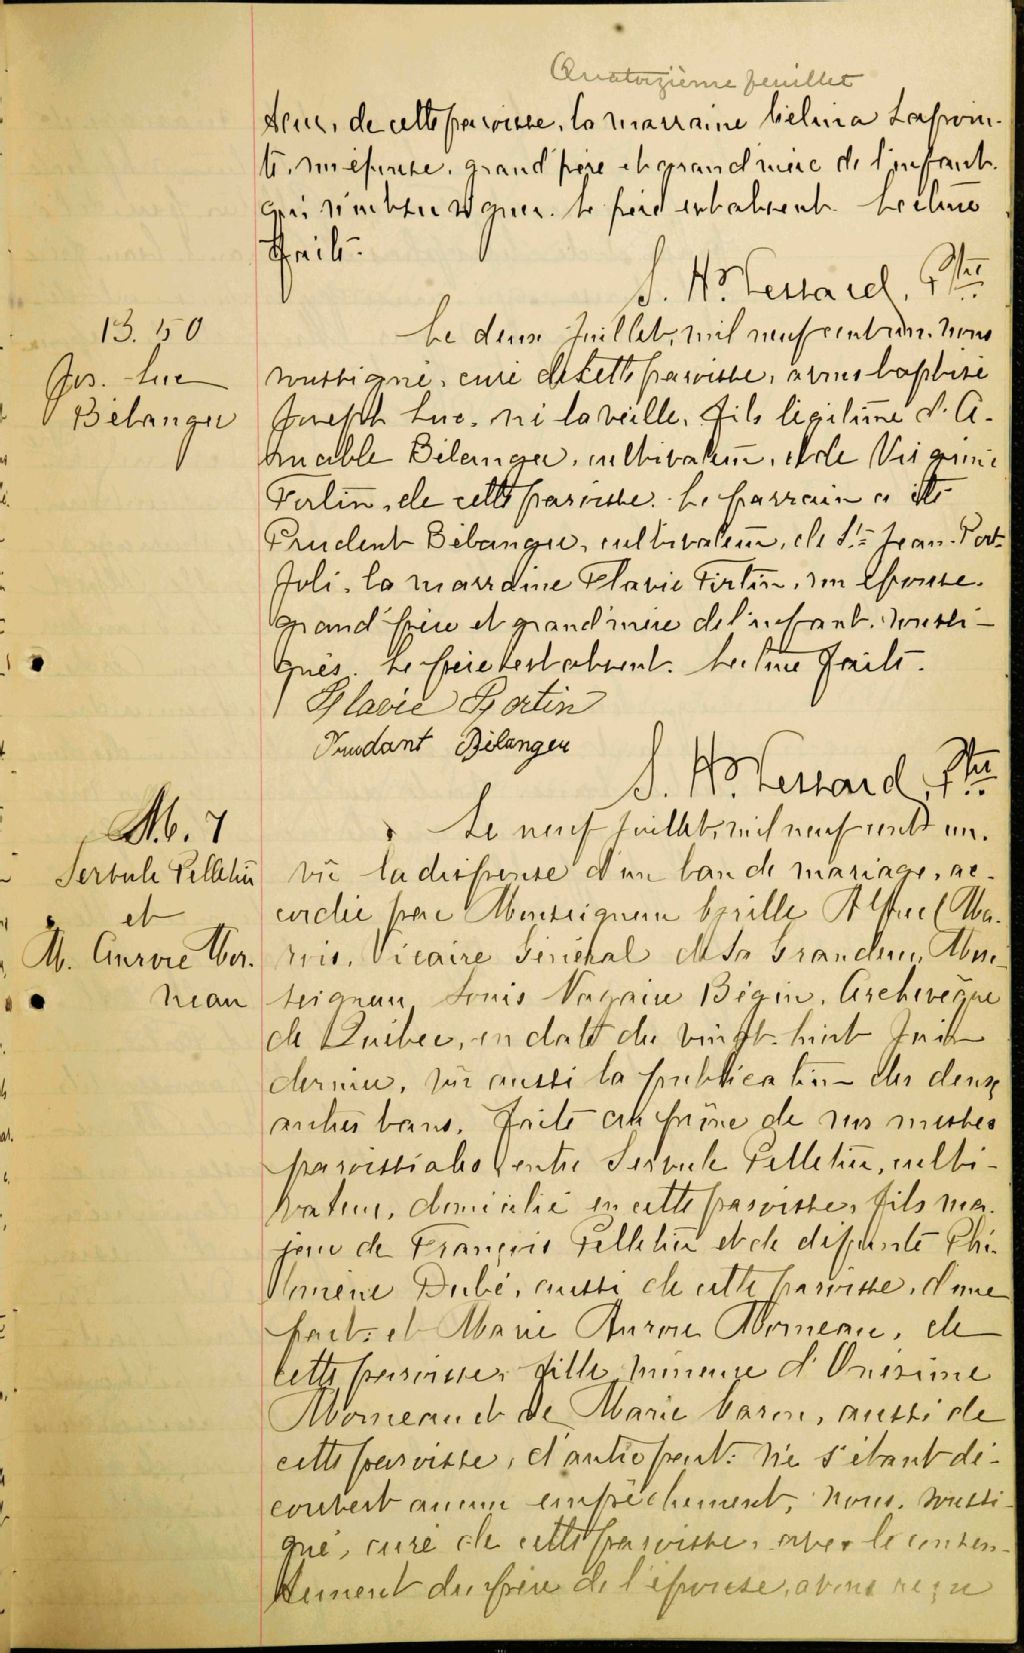 Quatorzième feuillet
teur, de cette paroisse, la marraine Célina Lapoin-
te, son épouse, grand'père et grand'mère de l'enfant.
qui n'ont su signer. Le père est absent. Lecture
faite.
S. Hr. Lessard, Ptre
B. 50
Jos. Luc
Bélanger
Le deux Juillet, mil neuf cent un, nous
soussigné, curé de cette paroisse, avons baptisé
Joseph Luc, né la veille, fils légitime d'A-
mable Bélanger, cultivateur, et de Virginie
Fortin, de cette paroisse. Le parrain a été
Prudent Bélanger, cultivateur, de St. Jean-Port-
Joli, la marraine Flavie Fortin, son épouse,
grand'père et grand'mère de l'enfant. soussi-
gnés. Le père est absent. Lecture faite.
Flavie Fortin
Prudant Bélanger
S. Hr. Lessard, Ptre
M. 7
Servule Pelletier
et
M. Aurore Mor-
neau
Le neuf Juillet, mil neuf cent un,
vu la dispense d'un ban de mariage, ac-
cordée par Monseigneur Cyrille Alfred Ma-
rois, Vicaire Général de Sa Grandeur, Mon-
seigneur Louis Nazaire Bégin, Archevêque
de Québec, en date du vingt-huit Juin
dernier, vu aussi la publication des deux
autres bans, faite au prône de nos messes
paroissiales, entre Servule Pelletier, culti-
vateur, domicilié en cette paroisse, fils ma-
jeur de François Pelletier et de défunte Phi-
lomène Dubé, aussi de cette paroisse, d'une
part: et Marie Aurore Morneau, de
cette paroisse, fille mineure d'Onésime
Morneau et de Marie Caron, aussi de
cette paroisse, d'autre part: ne s'étant dé-
couvert aucun empêchement, nous, soussi-
gné, curé de cette paroisse, avec le consen-
tement du père de l'épouse, avons reçu